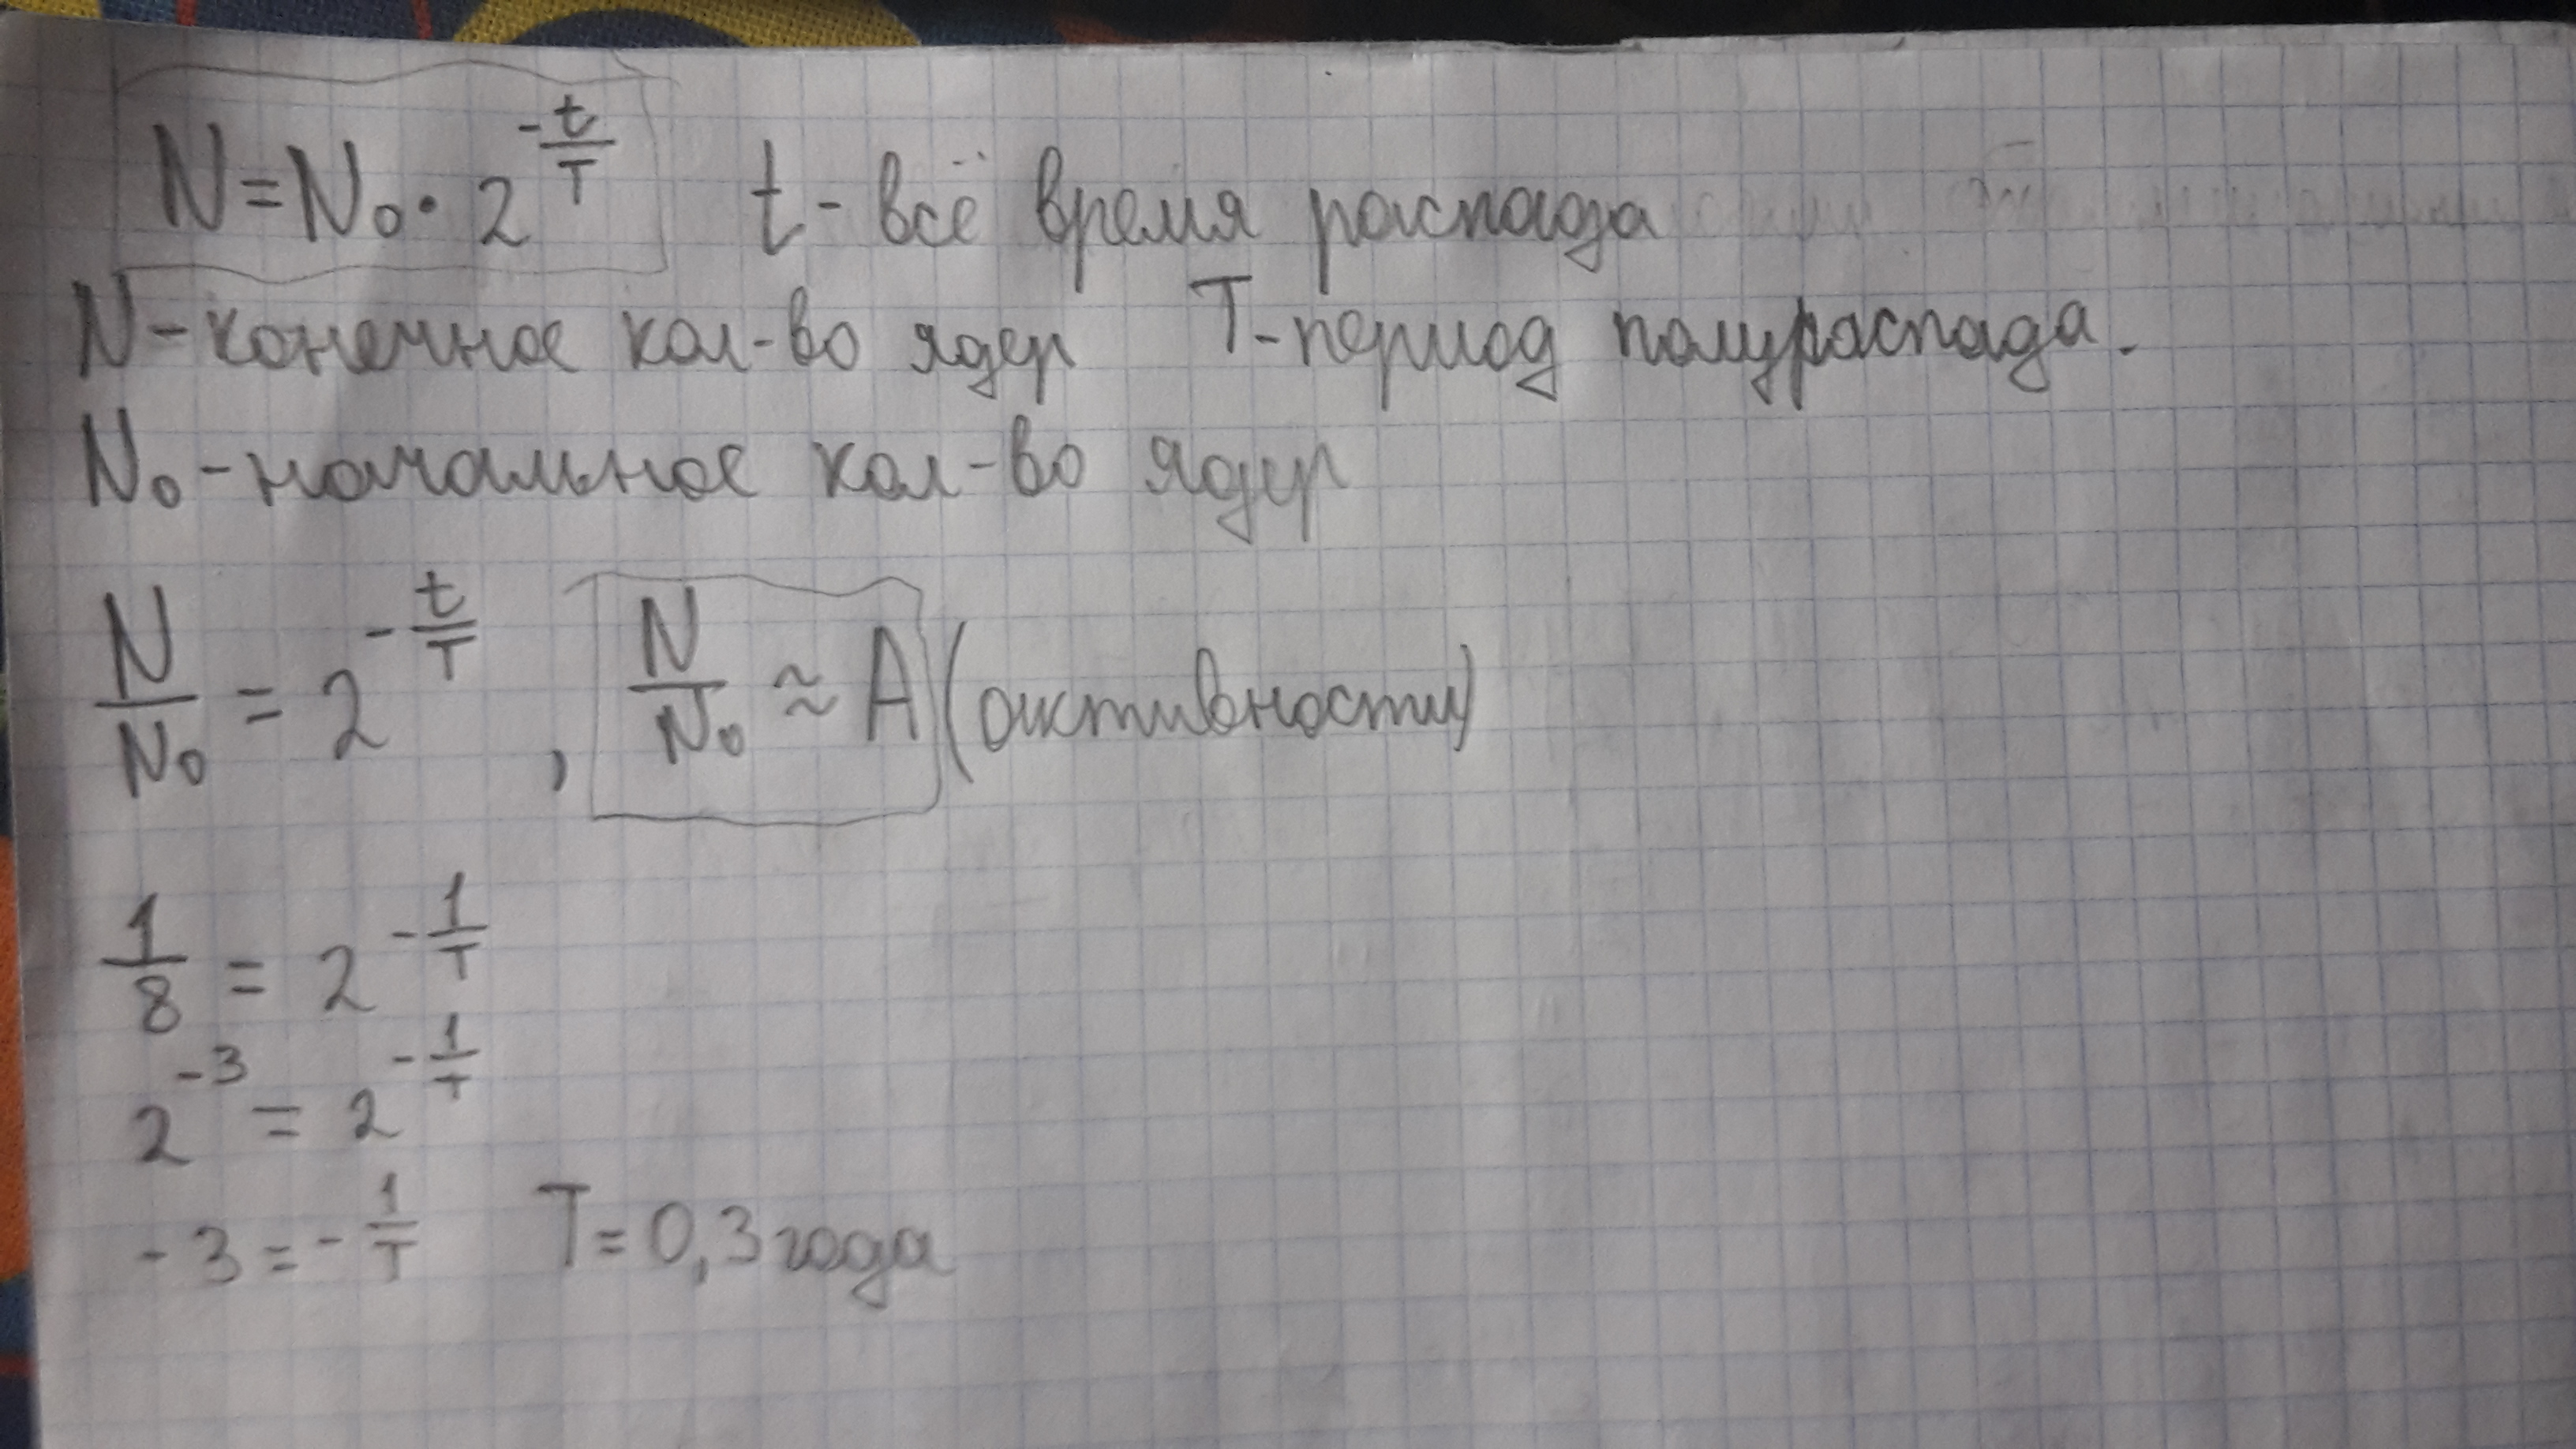 N = N₀ · 2^(-t/T) t - всё время распада
N - конечное кол-во ядер T - период полураспада.
N₀ - начальное кол-во ядер
N/N₀ = 2^(-t/T) , N/N₀ ≈ A (активности)
1/8 = 2^(-1/T)
2^(-3) = 2^(-1/T)
-3 = -1/T T = 0,3 года